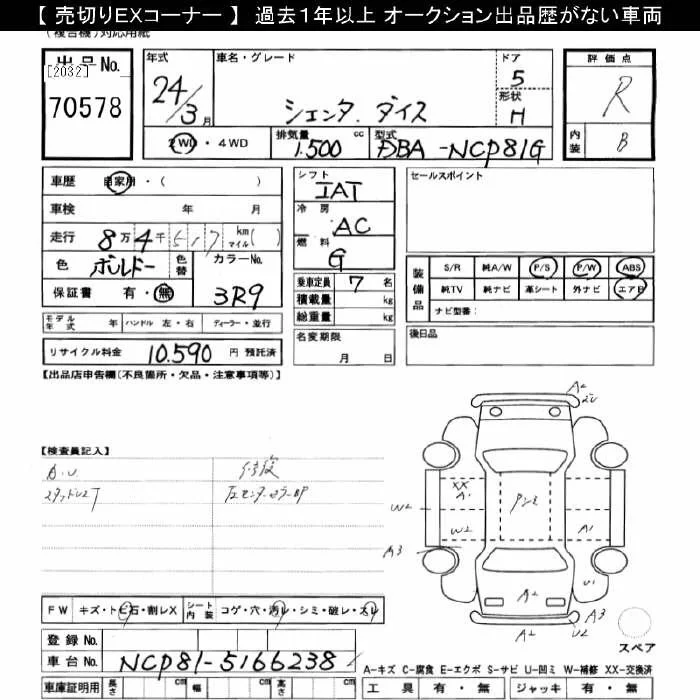 【 売切りEXコーナー 】 過去１年以上 オークション出品歴がない車両
(複合機)対応用紙
出品No. [2032] 70578
年式 24/3月
車名・グレード シエンタ ダイス
ドア 5
形状 H
評価点 R
内装 B
2WD・4WD
排気量 1.500 cc
型式 DBA-NCP81G
車歴 自家用・( )
車検 年 月
走行 8万4千517 km マイル( )
色 ボルドー 色替 カラーNo. 3R9
保証書 有・無
シフト IAT
冷房 AC
燃料 G
乗車定員 7 名
積載量 kg
総重量 kg
セールスポイント
装備品 S/R 純A/W P/S P/W ABS
純TV 純ナビ 革シート 外ナビ エアB
ナビ型番:
モデル年式 年 ハンドル 左・右 ディーラー・並行
名変期限 月 日
後日品
リサイクル料金 10.590 円 預託済
【出品店申告欄(不良箇所・欠品・注意事項等)】
【検査員記入】
修復
A2
XX
A1
W2
W2
A1
A3
U1
A2
A3
A2
U2
スペア
FW キズ・トビ石・割レX シート内装 コゲ・穴・汚レ・シミ・破レ・スレ
登録No.
車台No. NCP81-5166238
A-キズ C-腐食 E-エクボ S-サビ U-凹ミ W-補修 XX-交換済
車庫証明用 長さ cm 幅 cm 高さ cm
工具 有・無 ジャッキ 有・無